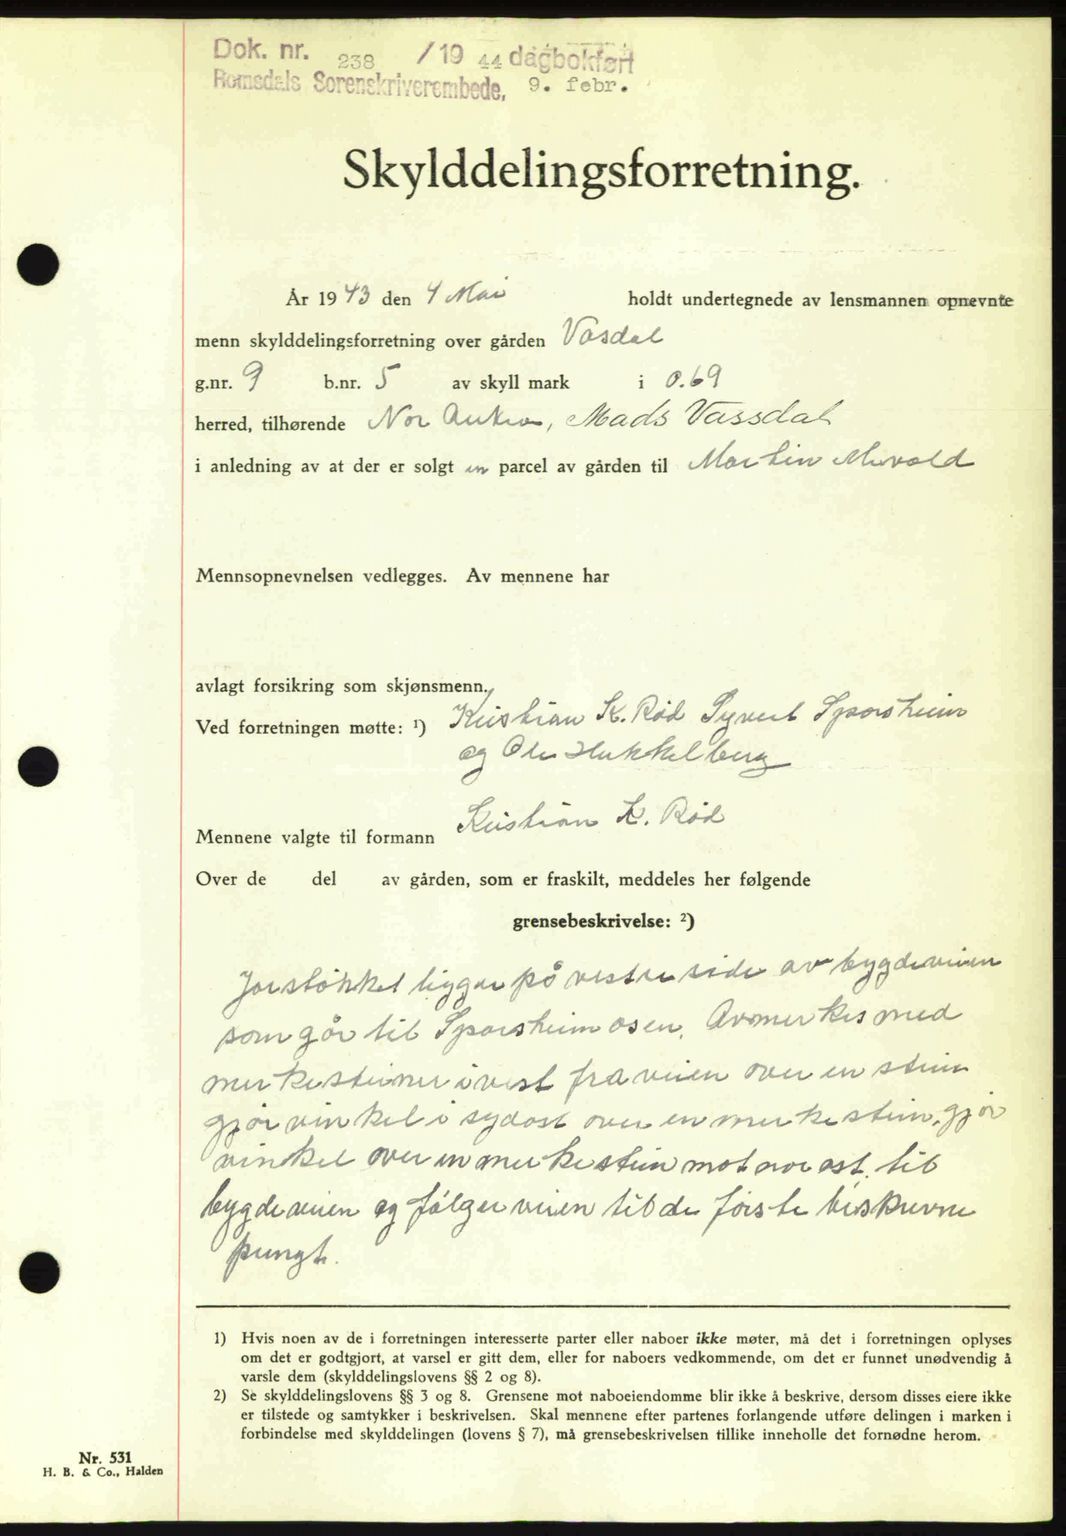 Dok. nr. 238 /19 44 dagbokført
Romsdals Sorenskriverembede, 9. febr.
Skylddelingsforretning.
År 1943 den 4 Mai holdt undertegnede av lensmannen opnevnte
menn skylddelingsforretning over gården Vasdal
g.nr. 9 b.nr. 5 av skyll mark i 0.69
herred, tilhørende Nor Aukra, Mads Vassdal
i anledning av at der er solgt en parcel av gården til Martin
Mennsopnevnelsen vedlegges. Av mennene har
avlagt forsikring som skjønsmenn.
Ved forretningen møtte: ¹) Kristian K. Rød Syvert Sporsheim
og Ole Hukkelberg
Mennene valgte til formann Kristian K. Rød
Over de del av gården, som er fraskilt, meddeles her følgende
grensebeskrivelse: ²)
Jorstökket ligger på vestre side av bygdeveien
som går til Sporsheimosen. Avmerkes med
merkesteiner i vest fra veien over en stein
gjør vinkel i sydøst over en merkestein, gjør
vinkel over en merkestein mot norøst, til
bygdeveien og følger veien til de første beskrevne
pungt.
1) Hvis noen av de i forretningen interesserte parter eller naboer ikke møter, må det i forretningen oplyses
om det er godtgjort, at varsel er gitt dem, eller for naboers vedkommende, om det er funnet unødvendig å
varsle dem (skylddelingslovens §§ 2 og 8).
2) Se skylddelingslovens §§ 3 og 8. Grensene mot naboeiendomme blir ikke å beskrive, dersom disses eiere ikke
er tilstede og samtykker i beskrivelsen. Skal mennene efter partenes forlangende utføre delingen i marken i
forbindelse med skylddelingen (lovens § 7), må grensebeskrivelsen tillike inneholle det fornødne herom.
Nr. 531
H. B. & Co., Halden